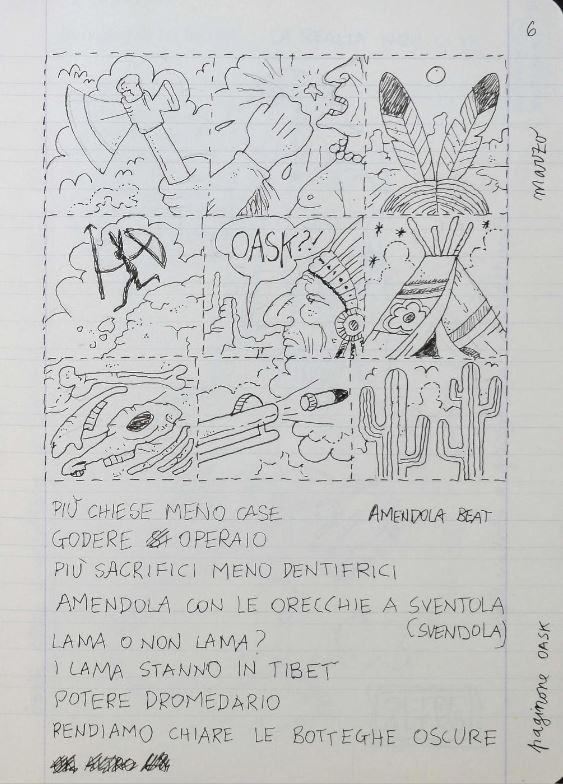 6
marzo
OASK?!
PIÙ CHIESE MENO CASE
AMENDOLA BEAT
GODERE OPERAIO
PIÙ SACRIFICI MENO DENTIFRICI
AMENDOLA CON LE ORECCHIE A SVENTOLA
(SVENDOLA)
LAMA O NON LAMA?
I LAMA STANNO IN TIBET
POTERE DROMEDARIO
RENDIAMO CHIARE LE BOTTEGHE OSCURE
paginone OASK